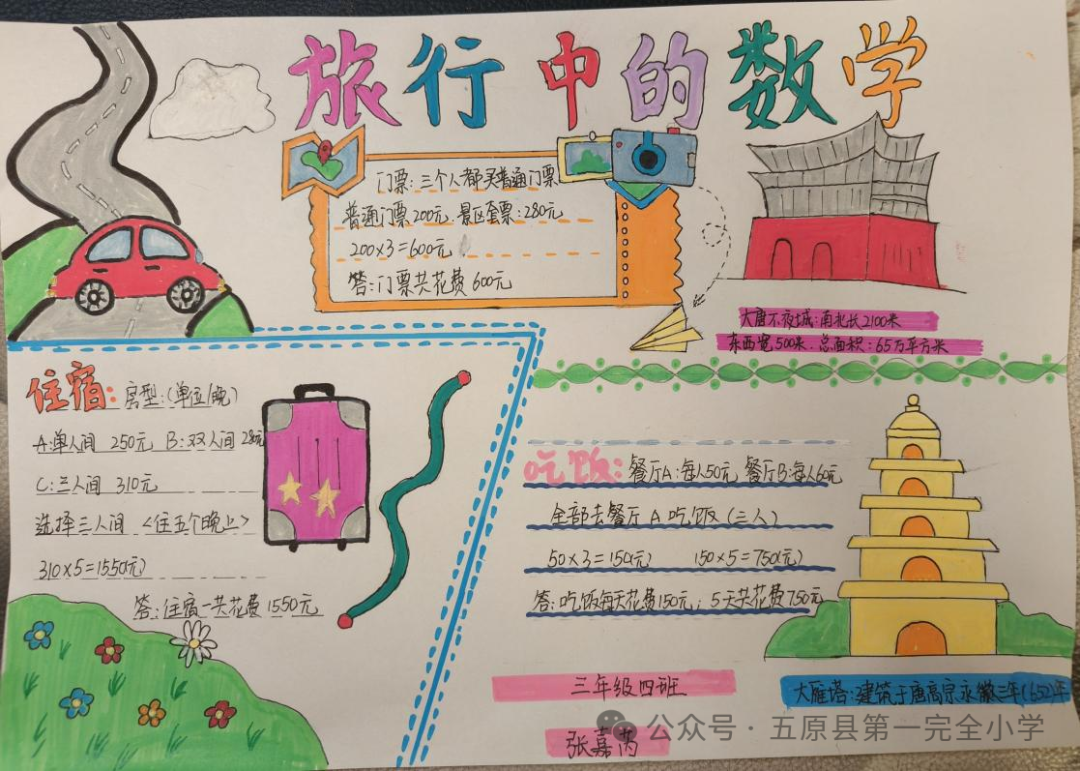 旅行中的数学
门票:三个人都买普通门票
普通门票200元.景区套票:280元
200×3=600元
答:门票共花费600元
大唐不夜城:南北长2100米
东西宽500米.总面积:65万平方米
住宿:房型:(单位/晚)
A:单人间 250元 B:双人间 280元
C:三人间 310元
选择三人间 <住五个晚上>
310×5=1550(元)
答:住宿一共花费1550元
吃饭:餐厅A:每人50元 餐厅B:每人60元
全部去餐厅A吃饭(三人)
50×3=150(元) 150×5=750(元)
答:吃饭每天花费150元;5天共花费750元
大雁塔:建筑于唐高宗永徽三年(652)年
三年级四班
张嘉芮
公众号·五原县第一完全小学